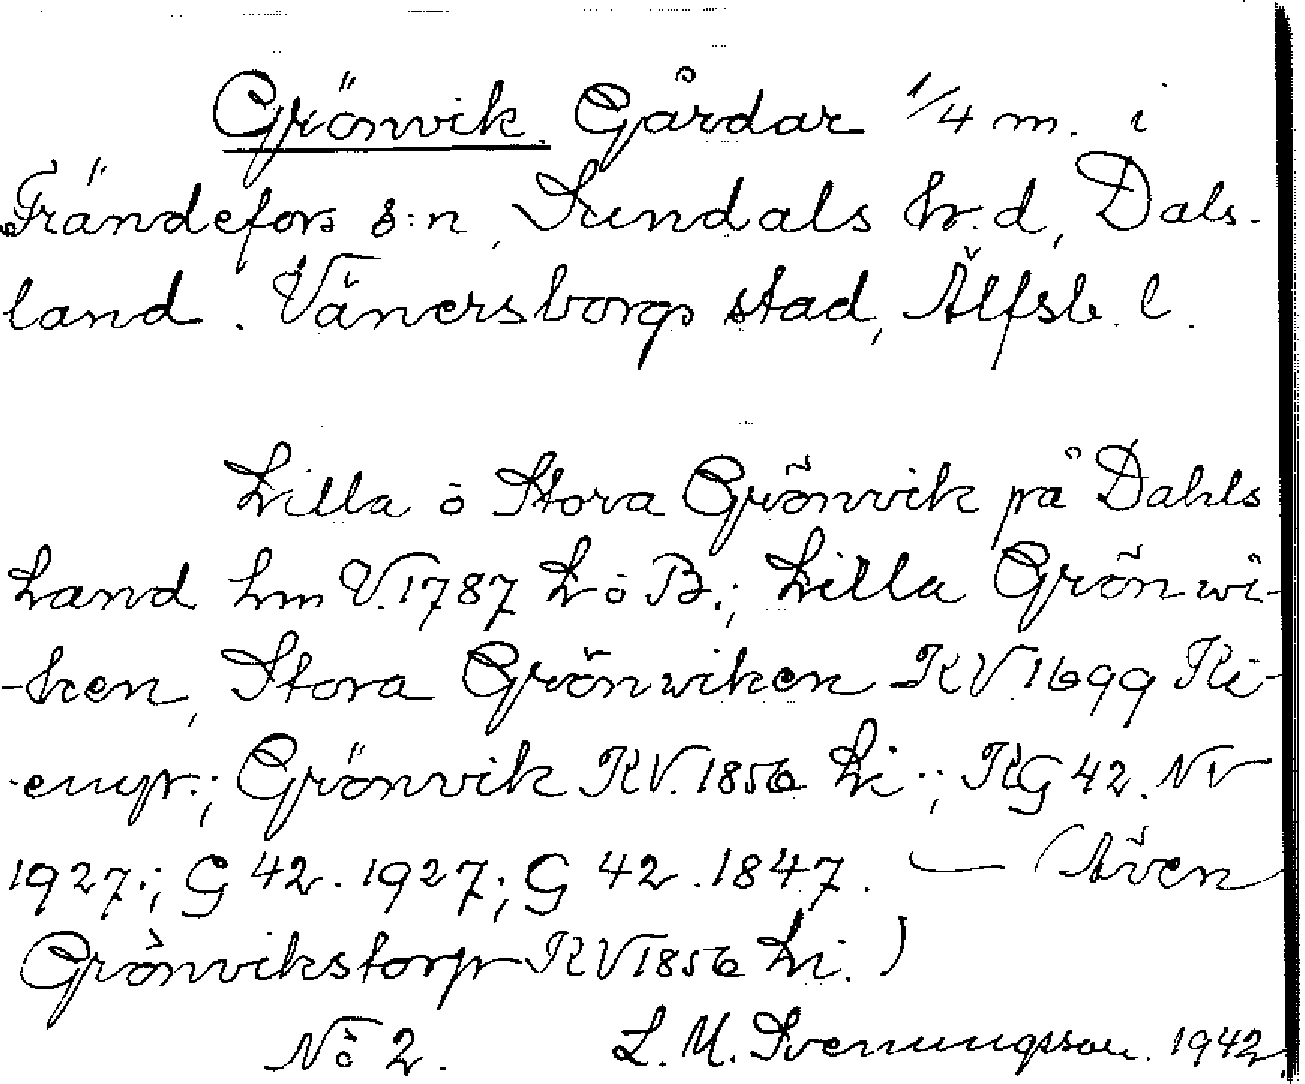 Grönvik. Gårdar 1/4 m. i
Frändefors s:n, Sundals hr.d, Dals-
land. Vänersborgs stad, Älfsb. l.
Lilla o Stora Grönvik på Dahls
Land Lm V.1787 L o B.; Lilla Grönwi-
-ken, Stora Grönwiken KV.1699 Ki-
-emp.; Grönvik KV.1856 Li.; KG 42. NV
1927.; G 42. 1927.; G 42. 1847. — (Även
Grönvikstorp KV1856 Li.)
No 2. L. M. Svenungsson. 1942